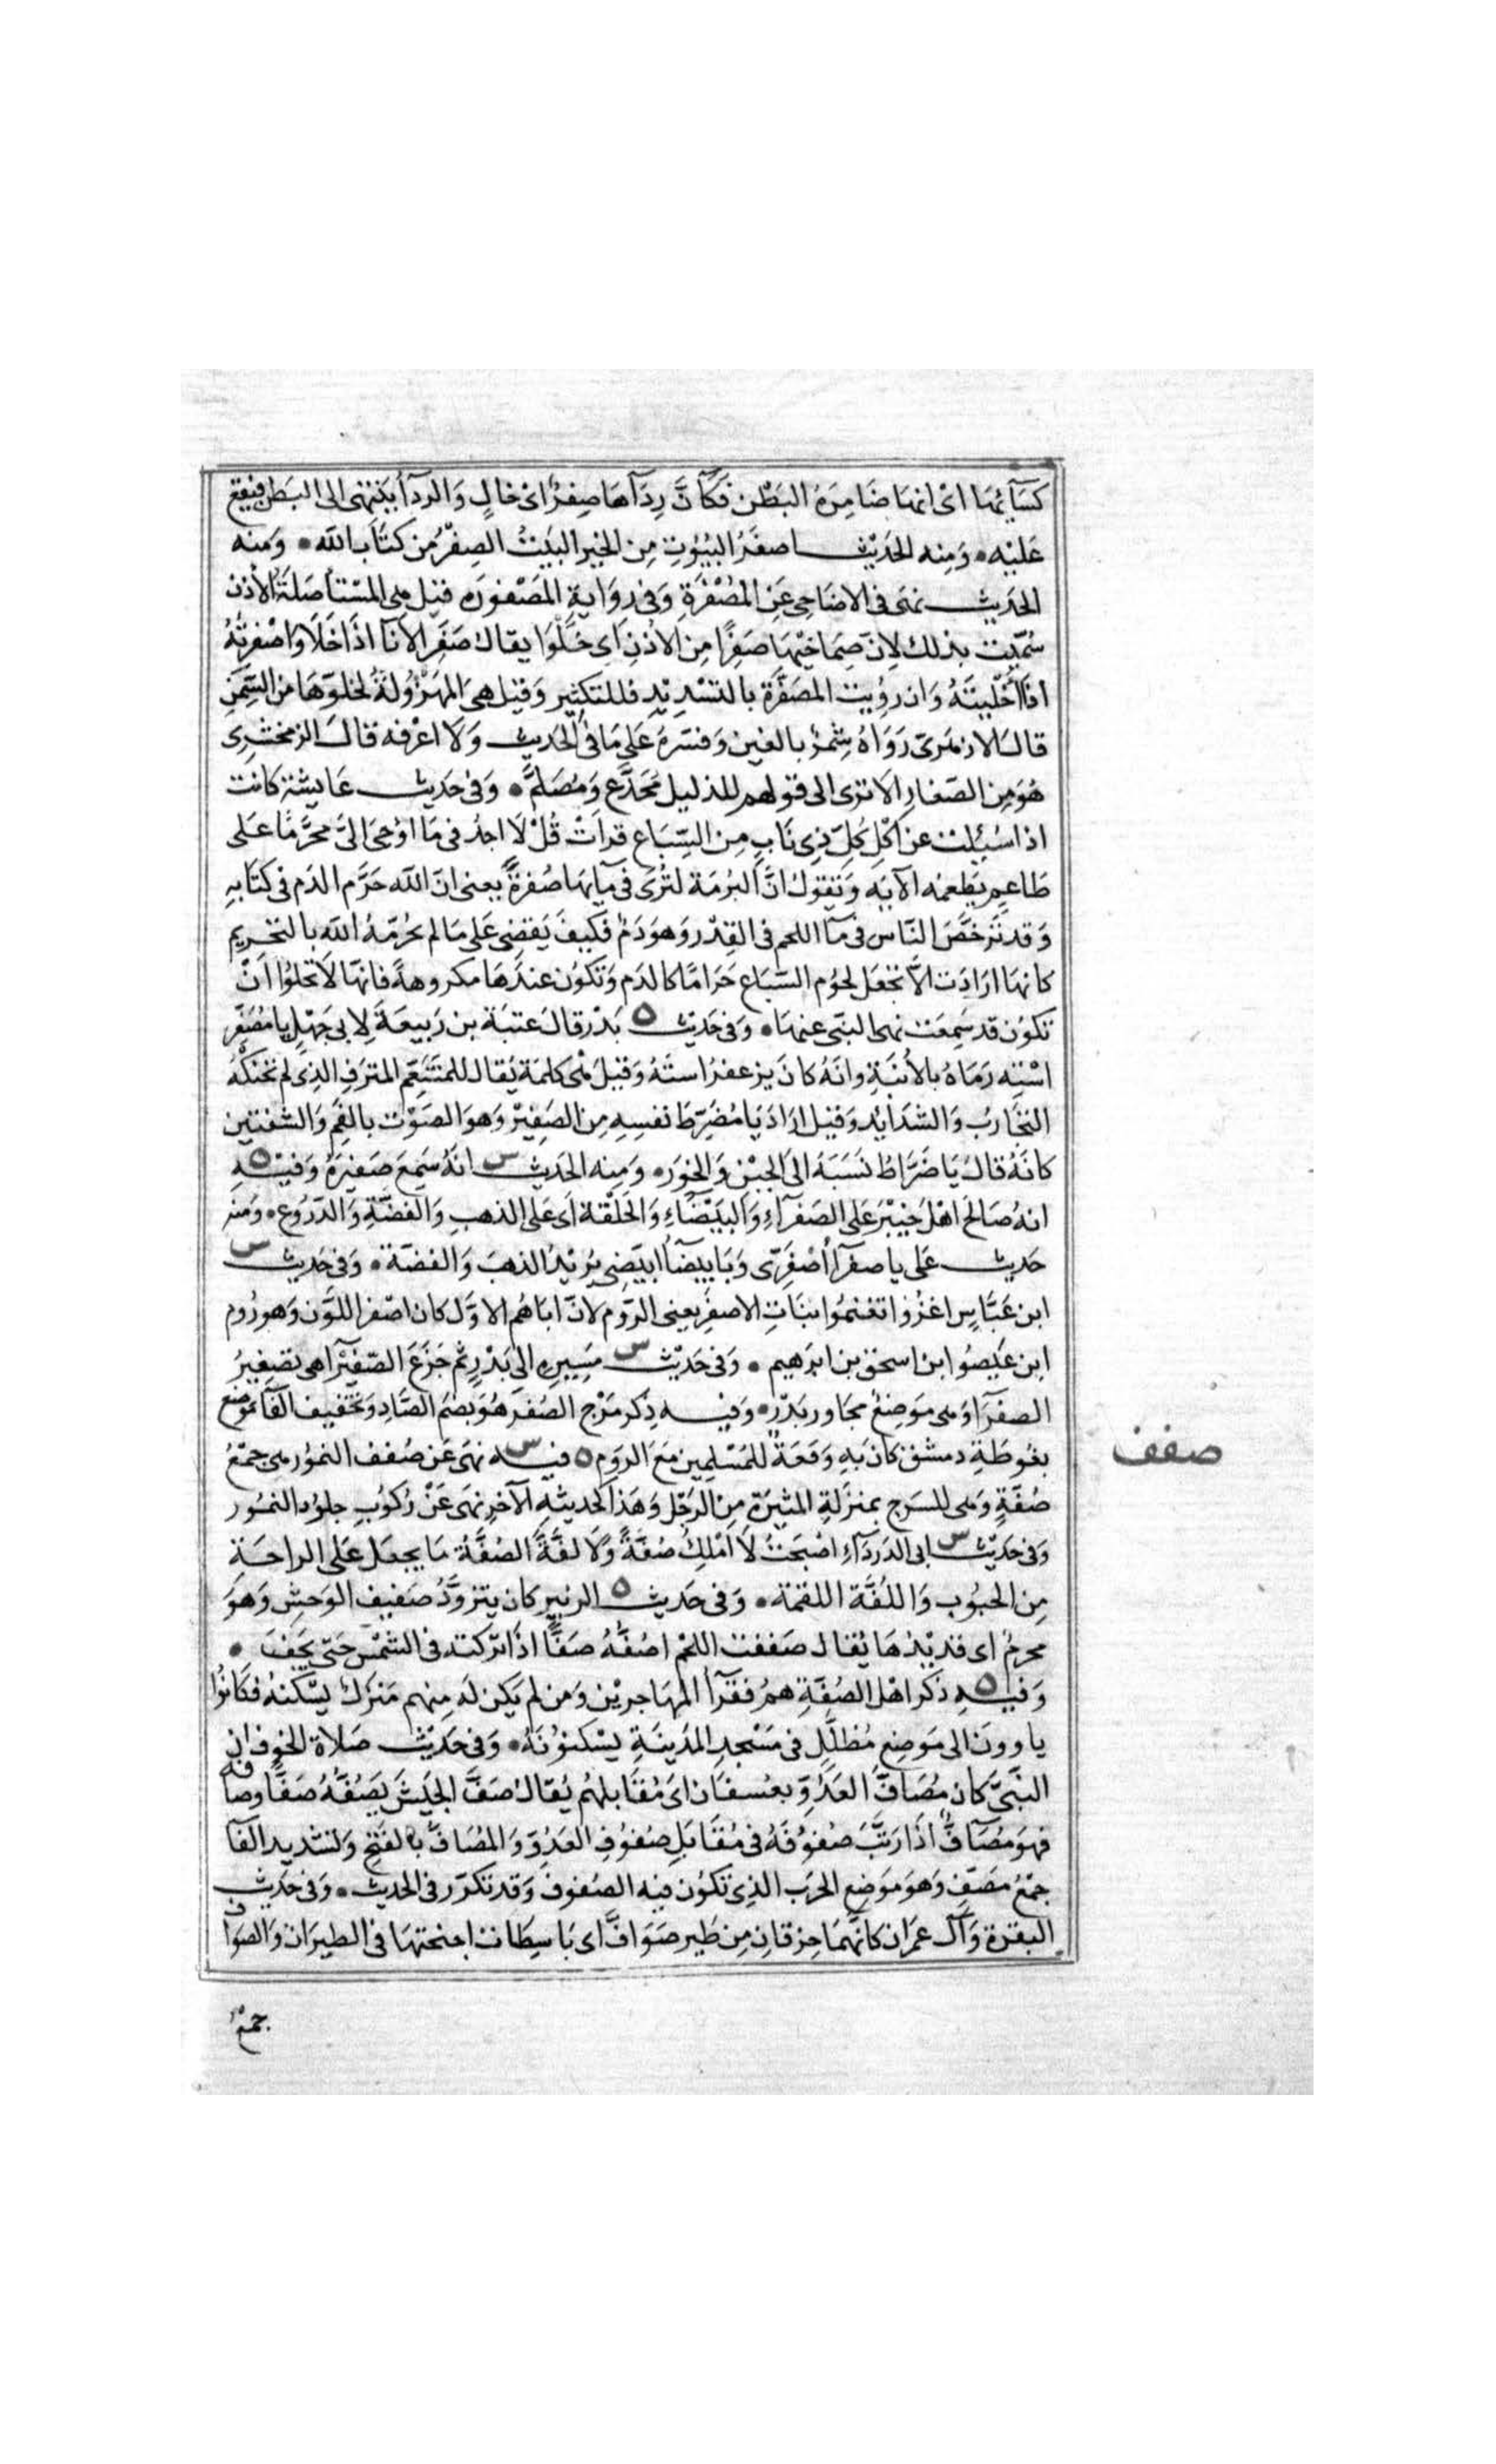 كسَآئها اى انها ضَامِرَةُ البَطْن فكَأنَّ رِدَآهَا صِفرٌ اى خالٍ وَالردآ يَنتهى الى البَطن فيقع
عَليْه ۰ وَمِنه الحَديْث اصفَرُ البُيُوْتِ مِن الخير البَيْتُ الصِفْرُ من كتَاب الله ۰ وَمنه
الحَديث نهَى فى الاضَاحِى عَنِ المُصْفَرَةِ وَفى رِوَايةِ المَصْفورَه قيل هى المسْتأصَلَةُ الأذن
سُمّيت بذلك لِانّ صِمَاخيْهَا صَفِرًا مِن الأذنِ اى خَلَوَا يقال صَفِرَ الاِنآ اذَا خَلَا وَاصْفرتُهُ
اذَا أخْليتَهُ وَان رُؤيت المصَفّرَة بالتشديْدِ فللتكثيرِ وَقيل هِىَ المهزُولَةُ لخلوّهَا من السِّمَنِ
قالَ الازهَرىّ رَوَاهُ شِمْرٌ بالغين وَفسَرهُ عَلى مَا فى الحَديث وَلَا اعْرفه قالَ الزمخشرِى
هُوَ مِن الصّغارِ الا ترى الى قولهم للذليل مُجَدَّع وَمُصَلمٌّ ۰ وَفى حَديث عَايشة كانت
اذا سُئِلت عن اكْلِ كلّ ذِى نَابٍ مِن السِّبَاع قرَاتْ قُلْ لَا اجدُ فى مَا اوْحِىَ الىَّ محرَّمًا عَلى
طَاعِمٍ يَطعمُه الآيَه وَتَقول انَّ البُرْمَة لتُرَى فى مآيهَا صُفرةٌ يعنى ان الله حَرَّم الدَم فى كتَابهِ
وَقد تَرَخَّصَ النّاس فى مآ اللحم فى القِدْر وَهو دَمٌ فكيفَ يَقضِى عَلى مَا لم يحُرّمهُ الله بالتحْريم
كانهَا ارَادَت الّا تجعَل لحُوم السّبَاع حَرَامًا كالدَم وَتكوُن عندَهَا مكروهةً فانهَا لا تخلوُا اَنْ
تكوُن قد سَمِعَت نهى النبى عنهَا ۰ وَفى حَديْث ٥ بَدْر قالَ عتبَة بن رَبيعَةَ لِابى جَهْلٍ يا مُصَفِّر
اسْتِه رَمَاهُ بالأُبنَةِ وانهُ كانَ يزعفرُ استَهُ وَقيلَ هى كلمَة يُقال للمتَنعّمِ المترَفِ الذِى لم تحنكهُ
التجَاربُ وَالشدَايد وَقيل ارَادَ يَا مُضَرِّطَ نفسِهِ مِن الصَفِيْرِ وَهوَ الصَوْت بالفمِ وَالشفتين
كانَهُ قالَ يَا ضَرَّاطُ نَسَبَهُ الى الجبْنِ وَالخوَر ۰ وَمِنه الحَديْث س انهُ سَمِعَ صَفيرَهُ وَفيْهِ ٥
انهُ صَالحَ اهْل خيْبَرَ عَلى الصَفرآءِ وَالبيَضَاءِ وَالحَلْقةِ اى عَلى الذهبِ وَالفضّةِ وَالدّرُوع ۰ وَمنه
حَديث عَلى يا صفرآ اصْفَرِّى وَيَا بيضآ ابيَضِى يُريْدُ الذهبَ وَالفضّة ۰ وَفى حَديث س
ابن عَبَّاسٍ اغزُوا تغنمُوا بنَاتِ الاصفَرِ يعنى الرّوم لانّ ابَاهُم الاوّل كان اصْفر اللوْن وَهو رُوم
ابن عَيصُوا ابن اسحق بن ابرَهيم ۰ وَفى حَديْث س مَسِيرِهِ الى بَدْرٍ ثم جَزَعَ الصّفيْرآ هى تصغِيرُ
الصفرَآ وَهى مَوضِعٌ مجَاور بَدْر ۰ وَفيه ذِكر مَرْج الصُفرَ هُوَ بضم الصّادِ وَتخفيف الفآ مَوضع
بغُوطَةِ دمشق كان بَهِ وَقعَةٌ للمُسْلِمين مَعَ الرَوُم ٥ فيه س نهَى عَن صُفف النمُور هى جمْعُ
صُفّةٍ وَهى للسَرج بمنزَلةِ الميْثرَةِ مِن الرَحْل وَهَذا كحديثهِ الآخر نهَى عَنْ رُكوُبِ جلوُد النمُور
وَفى حَديْث س ابى الدَردَآءِ اصْبَحتُ لَا اَمْلِكُ صُفّةً وَلَا لفَّةً الصُفَّةُ مَا يجعَل عَلى الراحَة
مِن الحبُوب وَاللُفَّة اللقمَة ۰ وَفى حَديث ٥ الزبيرِ كان يتزوَّدُ صَفيف الوَحشِ وَهوَ
محرمٌ اى قديْدهَا يُقال صَففت اللحْمَ اصُفّهُ صَفًّا اذَا ترَكته فى الشمْس حَتى يَجِفَ ۰
وَفيهِ ٥ ذكر اهْل الصُفّةِ همُ فقرَآ المهَاجريْن وَمَن لم يَكن لهَ مِنهم مَنزِلٌ يَسْكنهُ فكَانوُا
ياوونَ الى مَوضِعٍ مُظلّلٍ فى مَسْجدِ المدَينَةِ يسْكنوُنَهُ ۰ وَفى حَديْث صَلاة الخوفِ ان
النّبىَّ كان مُصَافَّ العَدُوِّ بعُسفَان اى مُقابلهُم يُقال صَفَّ الجَيشَ يَصُفّهُ صَفًّا وصَافّه
فهوَ مُصَآفٌّ اذَا رَتّبَ صُفوُفَهُ فى مُقابَلِ صُفوُفِ العَدُوِّ وَالمُصَافّ بالفتح وَتشديد الفآ
جمْعُ مصَفّ وَهوَ مَوضِع الحَرَب الذِى تكوُن فيه الصُفوفَ وَقد تكرّر فى الحديث ۰ وَفى حَديْث
البقرة وَآل عمَران كانهَّمَا حِزقانِ مِن طَيرٍ صَوَافَّ اى بَاسِطَات اجنحتهَا فى الطيرَان وَالصَوَافّ
جمْعُ
صفف